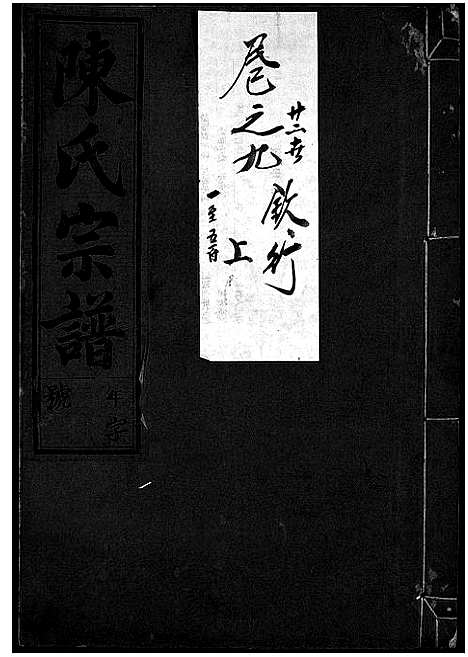 廿二世 欽行
卷之九 上
一至五百
陳氏宗譜
年字
號